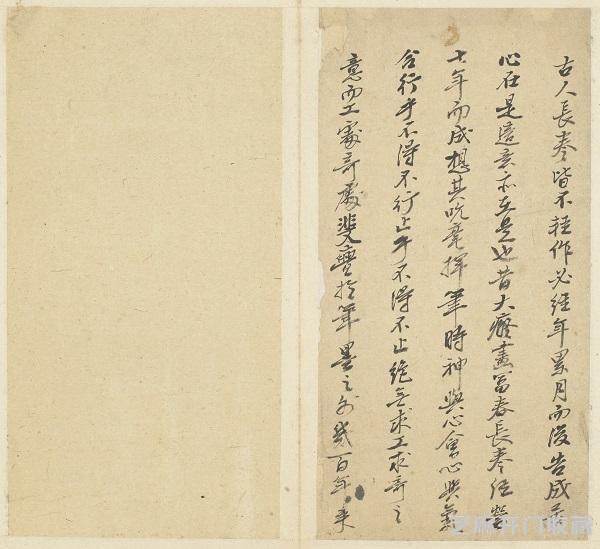 古人長卷皆不輕作必經年累月而後告成苦
心在是適意亦在是也昔大癡畫富春長卷經營
七年而成想其吮毫揮筆時神與心會心與氣
合行乎不得不行止乎不得不止絕無求工求奇之
意而工處奇處斐亹於筆墨之外幾百年來
芝麻开门收藏